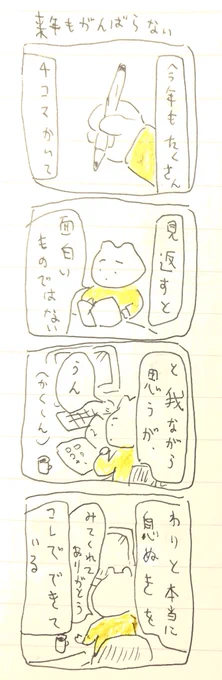 来年もがんばらない
今年もたくさん
4コマかいて
見返すと
面白い
ものではない
と我ながら
思うが
うん
(かくしん)
わりと本当に
息ぬきを
みてくれて
ありがとう
コレでできて
いる